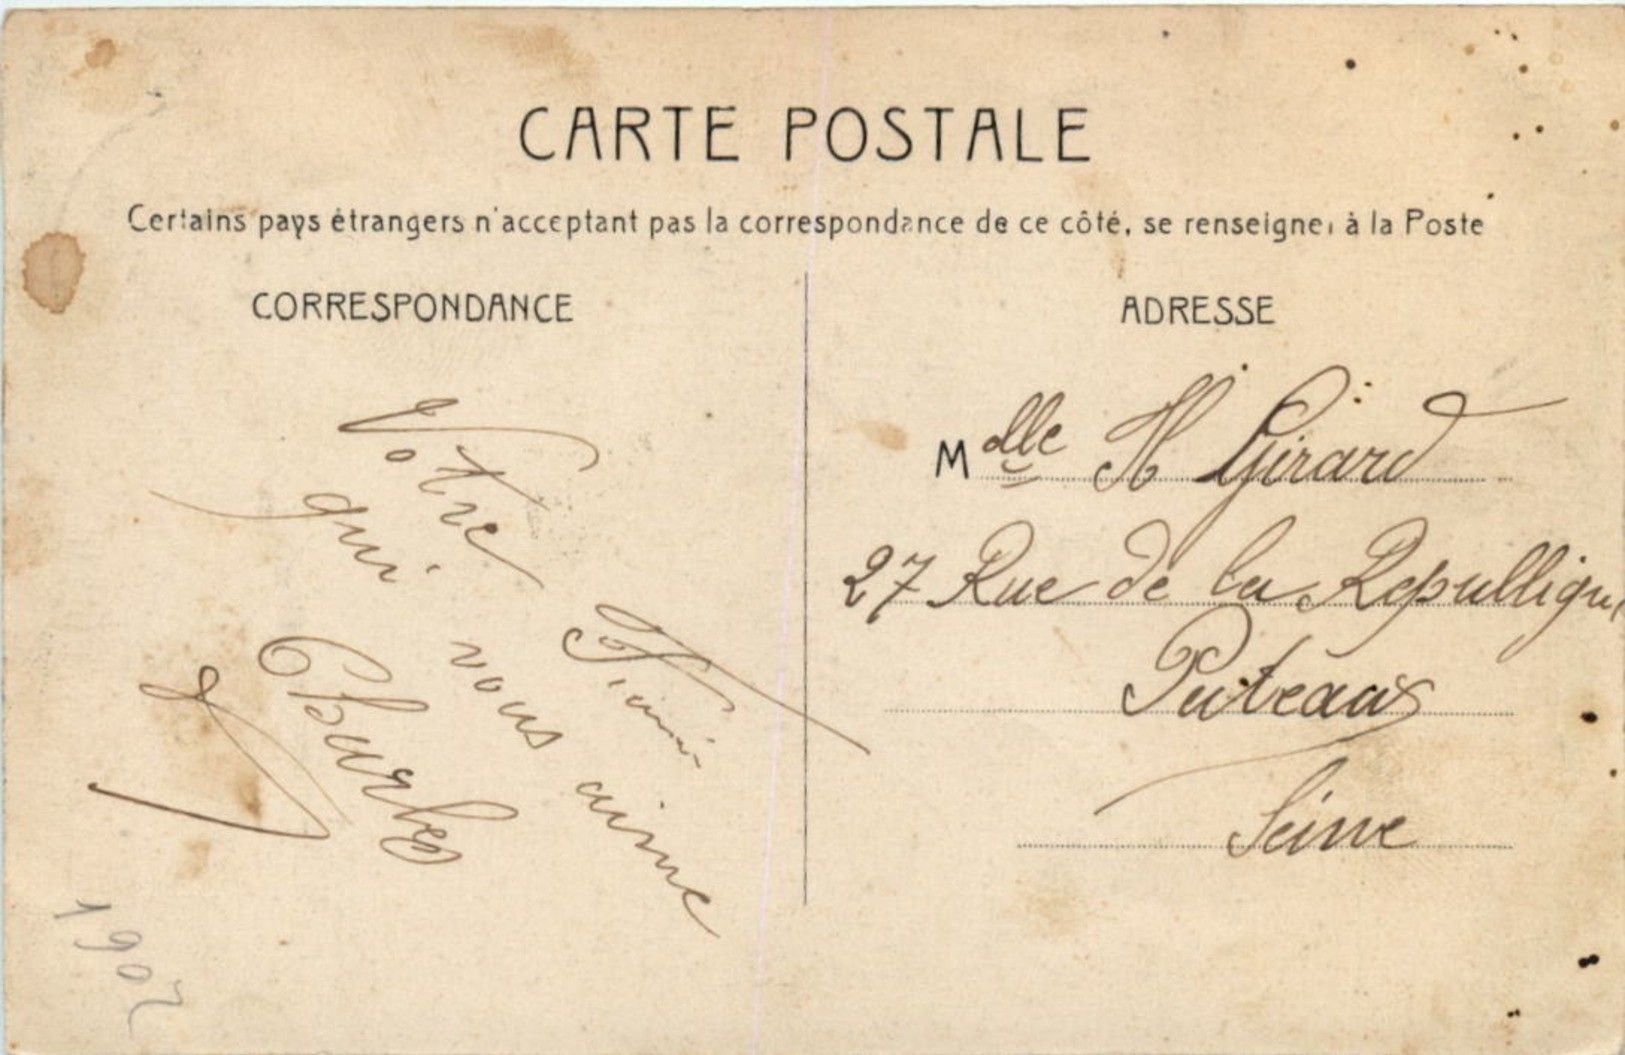 CARTE POSTALE
Certains pays étrangers n'acceptant pas la correspondance de ce côté, se renseigner à la Poste
CORRESPONDANCE
Votre
qui vous aime
Charles
ADRESSE
Mdlle H Girard
27 Rue de la Republique
Puteaux
Seine